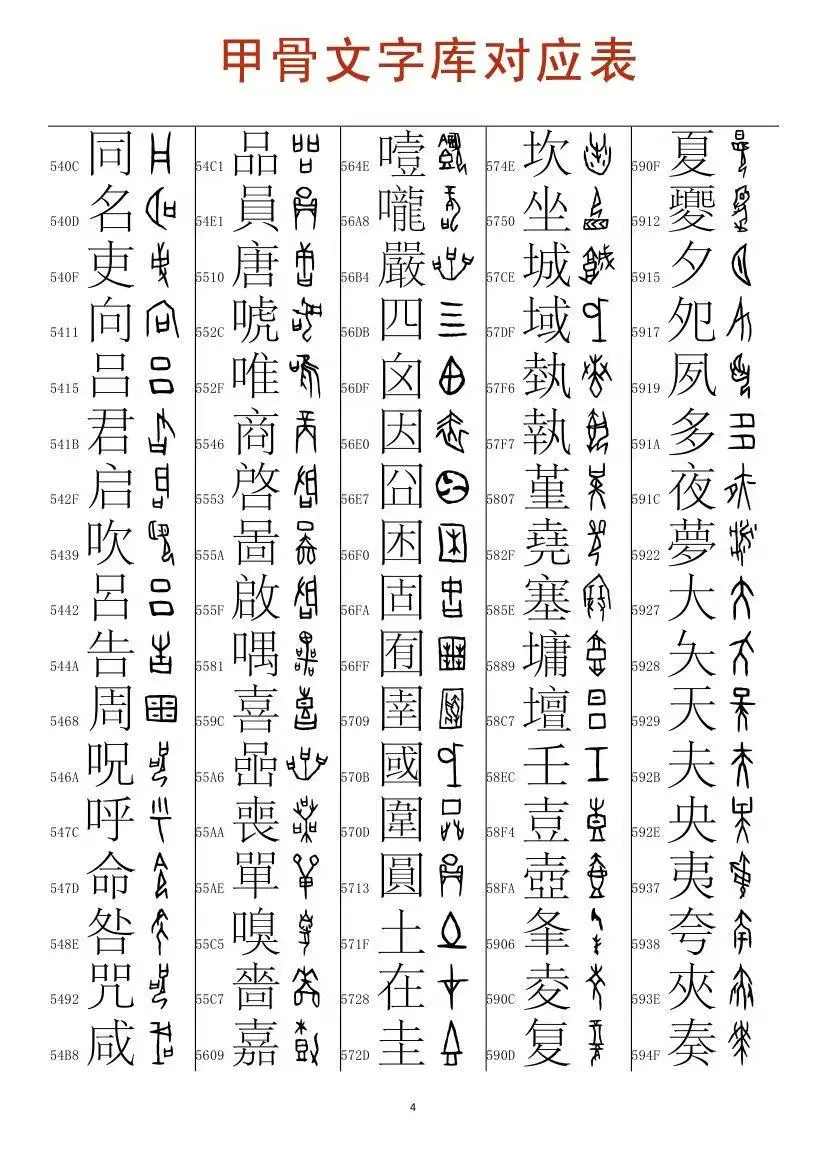 甲骨文字库对应表
540C 同
540D 名
540F 吏
5411 向
5415 吕
541B 君
542F 启
5439 吹
5442 呂
544A 告
5468 周
546A 呪
547C 呼
547D 命
548E 咎
5492 咒
54B8 咸
54C1 品
54E1 員
5510 唐
552C 唬
552F 唯
5546 商
5553 啓
555A 啚
555F 啟
5581 喁
559C 喜
55A6 喦
55AA 喪
55AE 單
55C5 嗅
55C7 嗇
5609 嘉
564E 噎
56A8 嚨
56B4 嚴
56DB 四
56DF 囟
56E0 因
56E7 囧
56F0 困
56FA 固
56FF 囿
5709 圉
570B 國
570D 圍
5713 圓
571F 土
5728 在
572D 圭
574E 坎
5750 坐
57CE 城
57DF 域
57F6 埶
57F7 執
5807 堇
582F 堯
585E 塞
5889 墉
58C7 壇
58EC 壬
58F4 壴
58FA 壺
5906 夆
590C 夌
590D 复
590F 夏
5912 夒
5915 夕
5917 夗
5919 夙
591A 多
591C 夜
5922 夢
5927 大
5928 夨
5929 天
592B 夫
592E 央
5937 夷
5938 夸
593E 夾
594F 奏
4